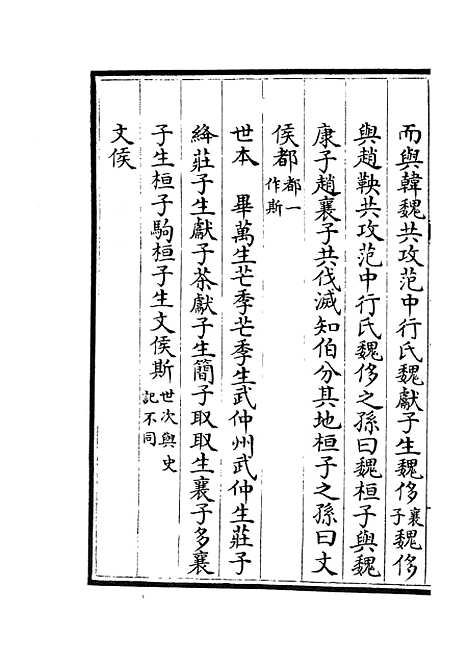 而與韓魏共攻范中行氏魏獻子生魏侈襄子魏侈
與趙鞅共攻范中行氏魏侈之孫曰魏桓子與魏
康子趙襄子共伐滅知伯分其地桓子之孫曰文
侯都都一作斯
世本　畢萬生芒季芒季生武仲州武仲生莊子
絳莊子生獻子荼獻子生簡子取取生襄子多襄
子生桓子駒桓子生文侯斯世次與史記不同
文侯